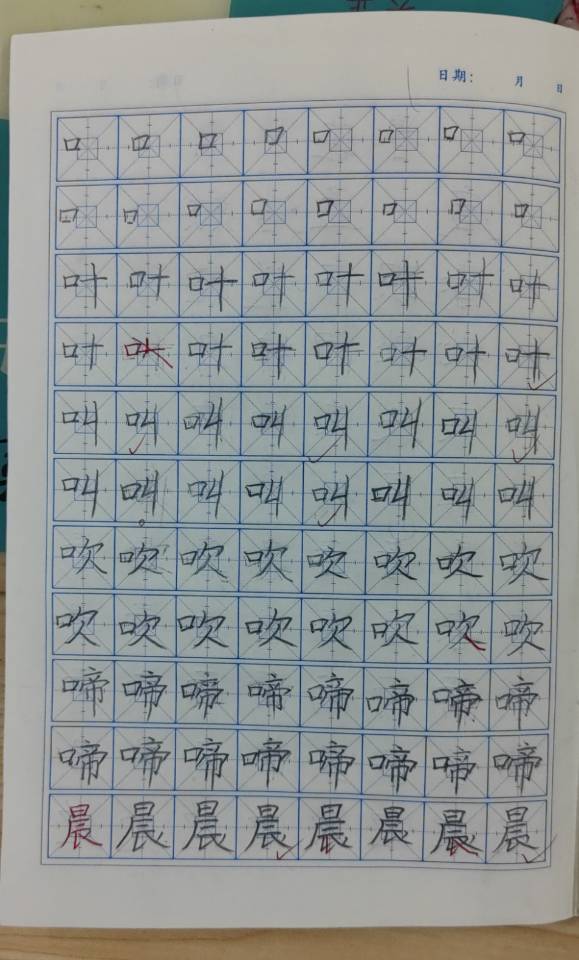 日期： 月 日
口 口 口 口 口 口 口 口
口 口 口 口 口 口 口 口
叶 叶 叶 叶 叶 叶 叶 叶
叶 叶 叶 叶 叶 叶 叶 叶
叫 叫 叫 叫 叫 叫 叫 叫
叫 叫 叫 叫 叫 叫 叫 叫
吹 吹 吹 吹 吹 吹 吹 吹
吹 吹 吹 吹 吹 吹 吹 吹
啼 啼 啼 啼 啼 啼 啼 啼
啼 啼 啼 啼 啼 啼 啼 啼
晨 晨 晨 晨 晨 晨 晨 晨